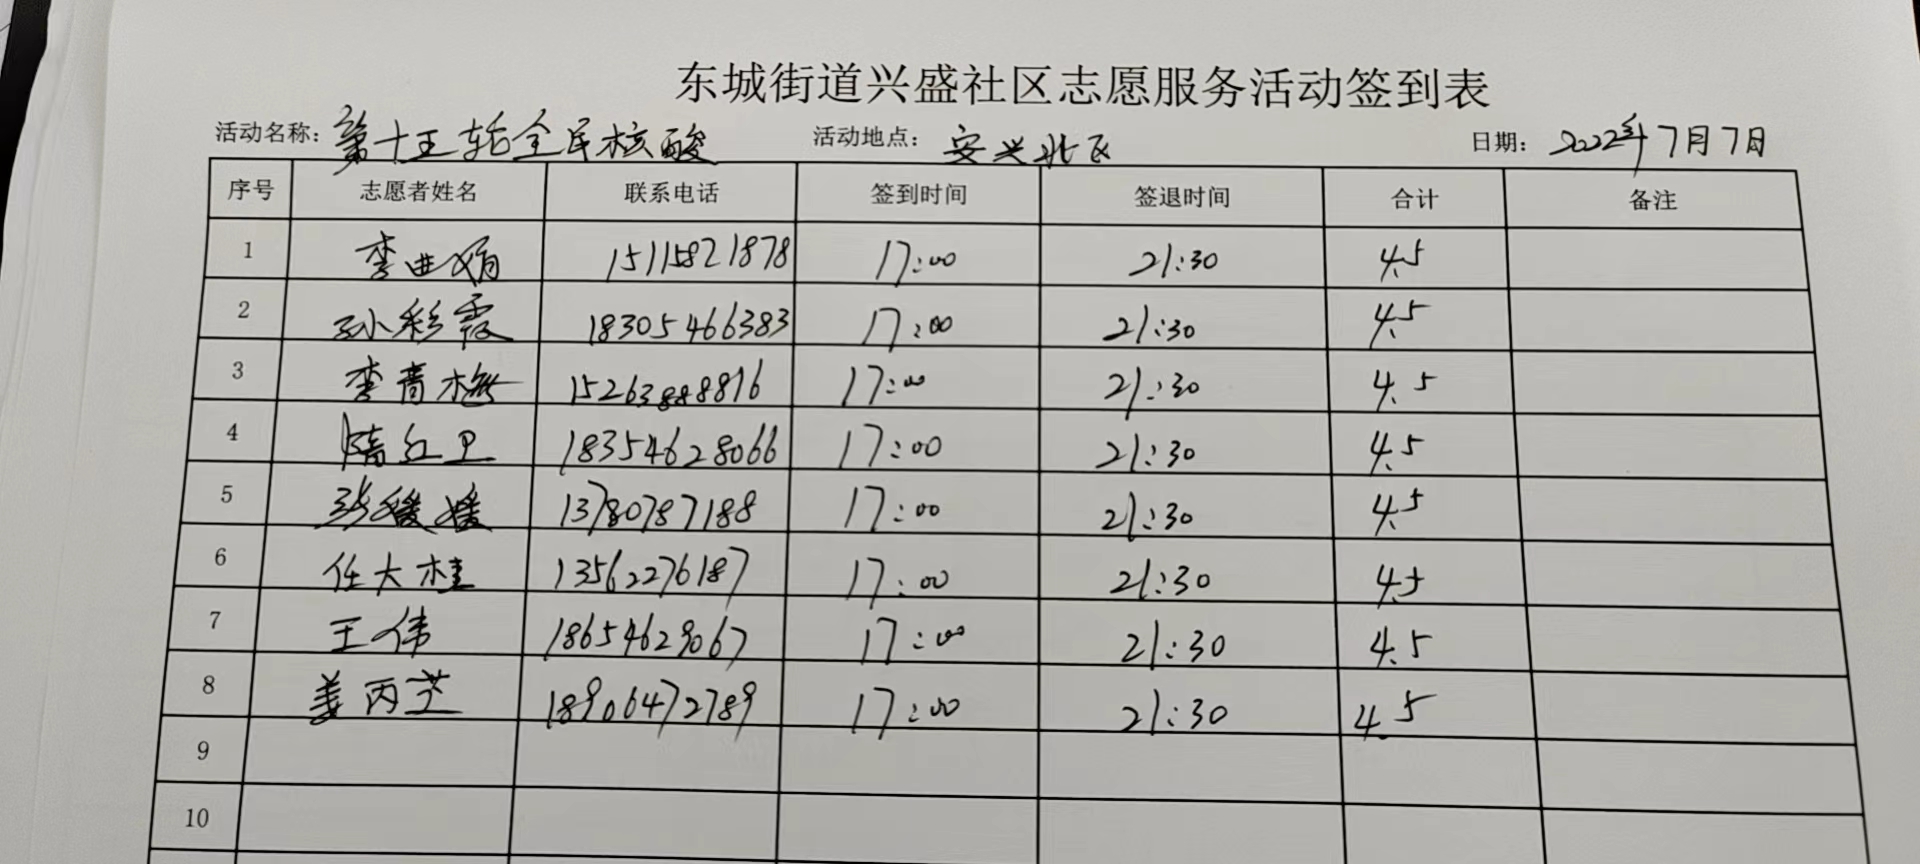 东城街道兴盛社区志愿服务活动签到表
活动名称：第十五轮全民核酸 活动地点：安兴北区 日期：2022年7月7日
序号 志愿者姓名 联系电话 签到时间 签退时间 合计 备注
1 李曲娟 15115821878 17:00 21:30 4.5
2 孙彩霞 18305466383 17:00 21:30 4.5
3 李青梅 15263888816 17:00 21:30 4.5
4 隋红卫 18354628066 17:00 21:30 4.5
5 张媛媛 13780787188 17:00 21:30 4.5
6 任大桂 13562276187 17:00 21:30 4.5
7 王伟 18654629067 17:00 21:30 4.5
8 姜丙芝 18906472789 17:00 21:30 4.5
9
10